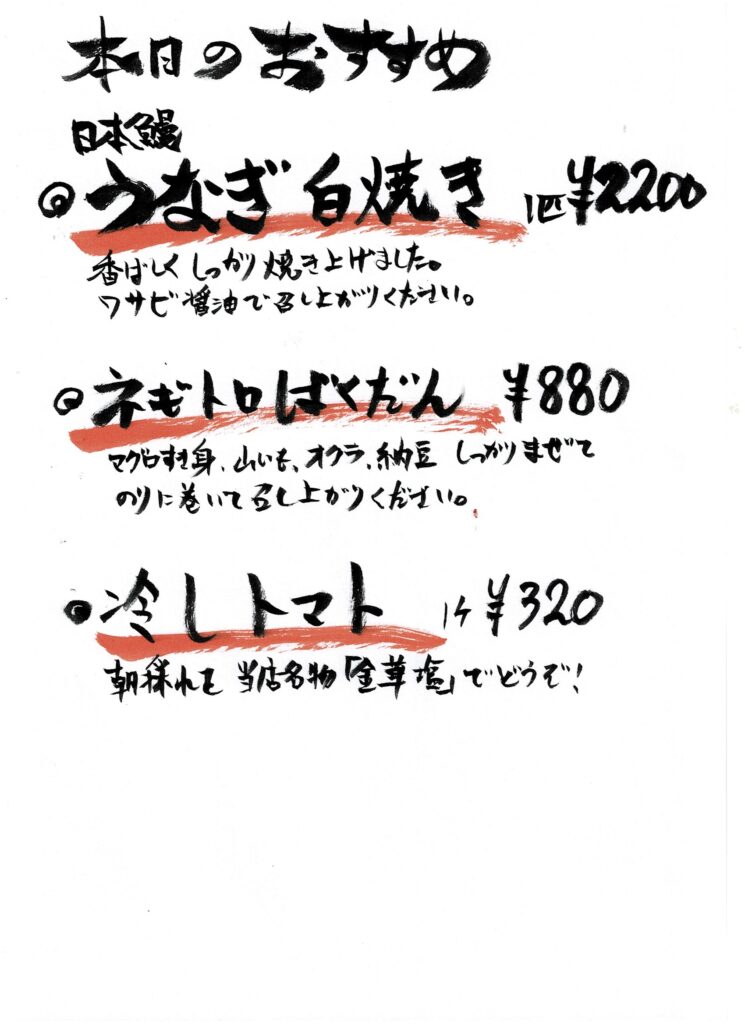 本日のおすすめ
日本鰻
うなぎ白焼き 1匹¥2200
香ばしく しっかり焼き上げました。
ワサビ醤油で召し上がりください。
ネギトロばくだん ¥880
マグロすき身、山いも、オクラ、納豆 しっかりまぜて
のりに巻いて召し上がりください。
冷しトマト 1ケ ¥320
朝採れを 当店名物「金草塩」でどうぞ!